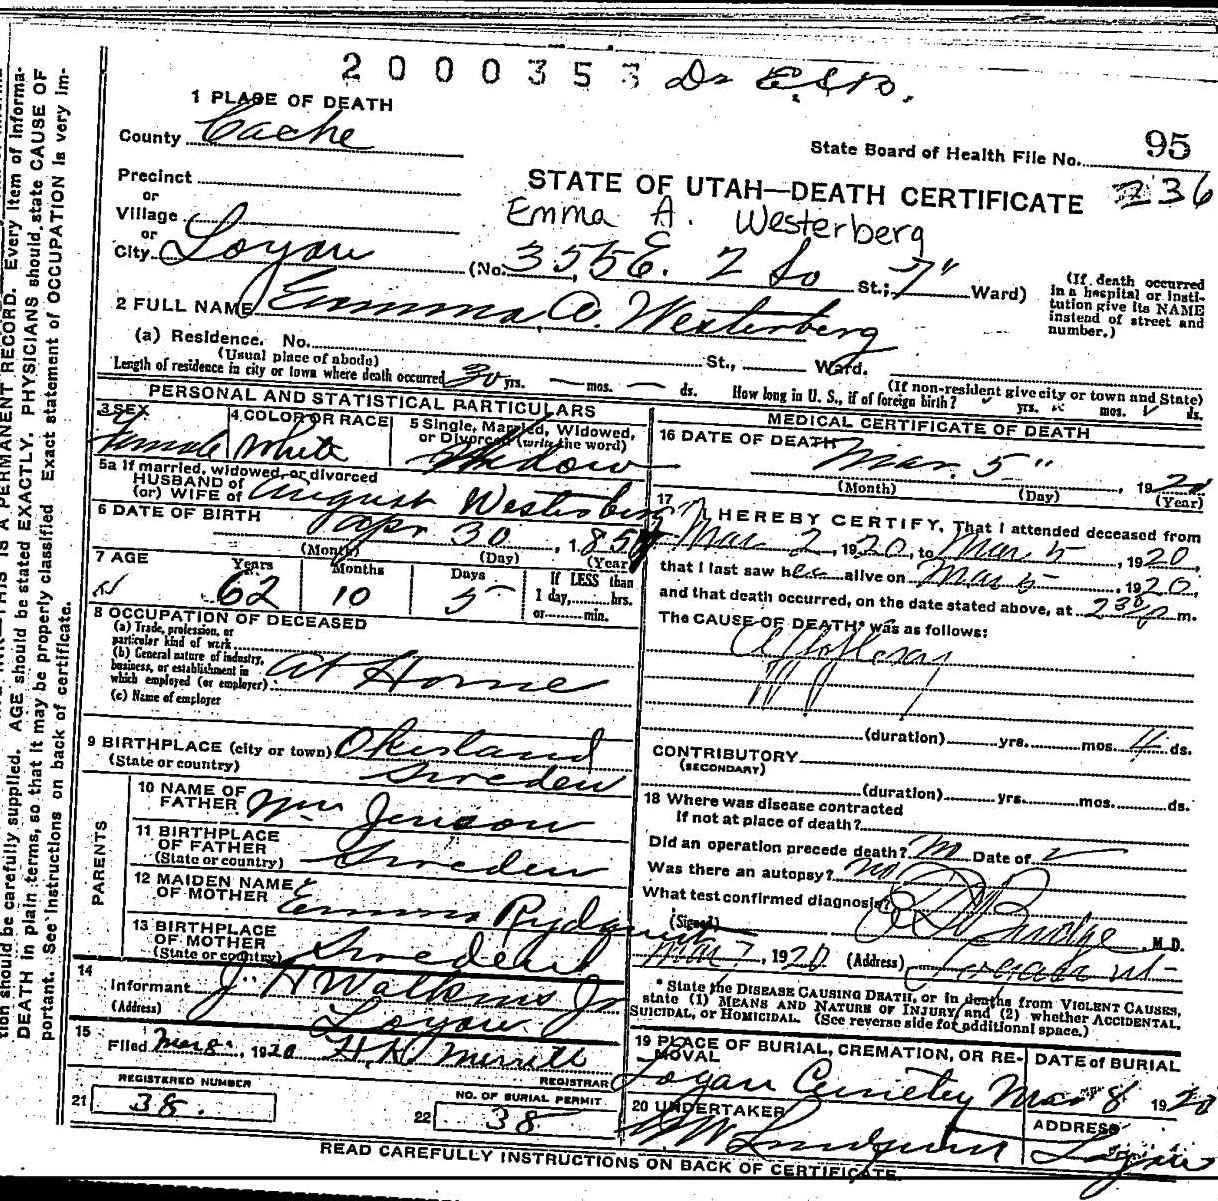 2000353 Dr E.S.B.
1 PLACE OF DEATH
County Cache
State Board of Health File No. 95
Precinct
or
Village
or
City Logan
STATE OF UTAH—DEATH CERTIFICATE 236
Emma A. Westerberg
(No. 355 E. 2 So St.; 7" Ward)
(If death occurred in a hospital or insti-
tution give its NAME
instead of street and
number.)
2 FULL NAME Emma A. Westerberg
(a) Residence. No. St., Ward.
(Usual place of abode)
(If non-resident give city or town and State)
Length of residence in city or town where death occurred 30 yrs. — mos. — ds. How long in U. S., if of foreign birth? yrs. mos. ds.
PERSONAL AND STATISTICAL PARTICULARS
3 SEX Female
4 COLOR OR RACE White
5 Single, Married, Widowed,
or Divorced (write the word)
Widow
5a If married, widowed, or divorced
HUSBAND of
(or) WIFE of August Westerberg
6 DATE OF BIRTH Apr 30, 1857
(Month) (Day) (Year)
7 AGE Years 62 Months 10 Days 5
If LESS than
1 day, hrs.
or min.
8 OCCUPATION OF DECEASED
(a) Trade, profession, or
particular kind of work
(b) General nature of industry,
business, or establishment in
which employed (or employer) At Home
(c) Name of employer
9 BIRTHPLACE (city or town)
(State or country) Sweden
PARENTS
10 NAME OF
FATHER Wm Jenson
11 BIRTHPLACE
OF FATHER
(State or country) Sweden
12 MAIDEN NAME
OF MOTHER Emma
13 BIRTHPLACE
OF MOTHER
(State or country) Sweden
14
Informant J. H Watkins Jr
(Address) Logan
15
Filed Mar 8, 1920 H. K. Merrill
REGISTRAR
REGISTERED NUMBER
21 38.
NO. OF BURIAL PERMIT
22 38
MEDICAL CERTIFICATE OF DEATH
16 DATE OF DEATH Mar. 5", 1920
(Month) (Day) (Year)
17 I HEREBY CERTIFY, That I attended deceased from
Mar 2, 1920, to Mar 5, 1920,
that I last saw her alive on Mar 5, 1920,
and that death occurred, on the date stated above, at 230 p m.
The CAUSE OF DEATH* was as follows:
Apoplexy
(duration) yrs. mos. 4 ds.
CONTRIBUTORY
(SECONDARY)
(duration) yrs. mos. ds.
18 Where was disease contracted
If not at place of death?
Did an operation precede death? No Date of
Was there an autopsy? No
What test confirmed diagnosis?
(Signed) Budge, M.D.
Mar 7, 1920 (Address) Logan Ut
* State the DISEASE CAUSING DEATH, or in deaths from VIOLENT CAUSES,
state (1) MEANS AND NATURE OF INJURY and (2) whether ACCIDENTAL,
SUICIDAL, or HOMICIDAL. (See reverse side for additional space.)
19 PLACE OF BURIAL, CREMATION, OR RE-
MOVAL
Logan Cemetery
DATE of BURIAL
Mar 8 1920
20 UNDERTAKER
Lundquist
ADDRESS
Logan
READ CAREFULLY INSTRUCTIONS ON BACK OF CERTIFICATE.
THIS IS A PERMANENT RECORD. Every item of informa-
tion should be carefully supplied. AGE should be stated EXACTLY. PHYSICIANS should state CAUSE OF
DEATH in plain terms, so that it may be properly classified. Exact statement of OCCUPATION is very im-
portant. See instructions on back of certificate.